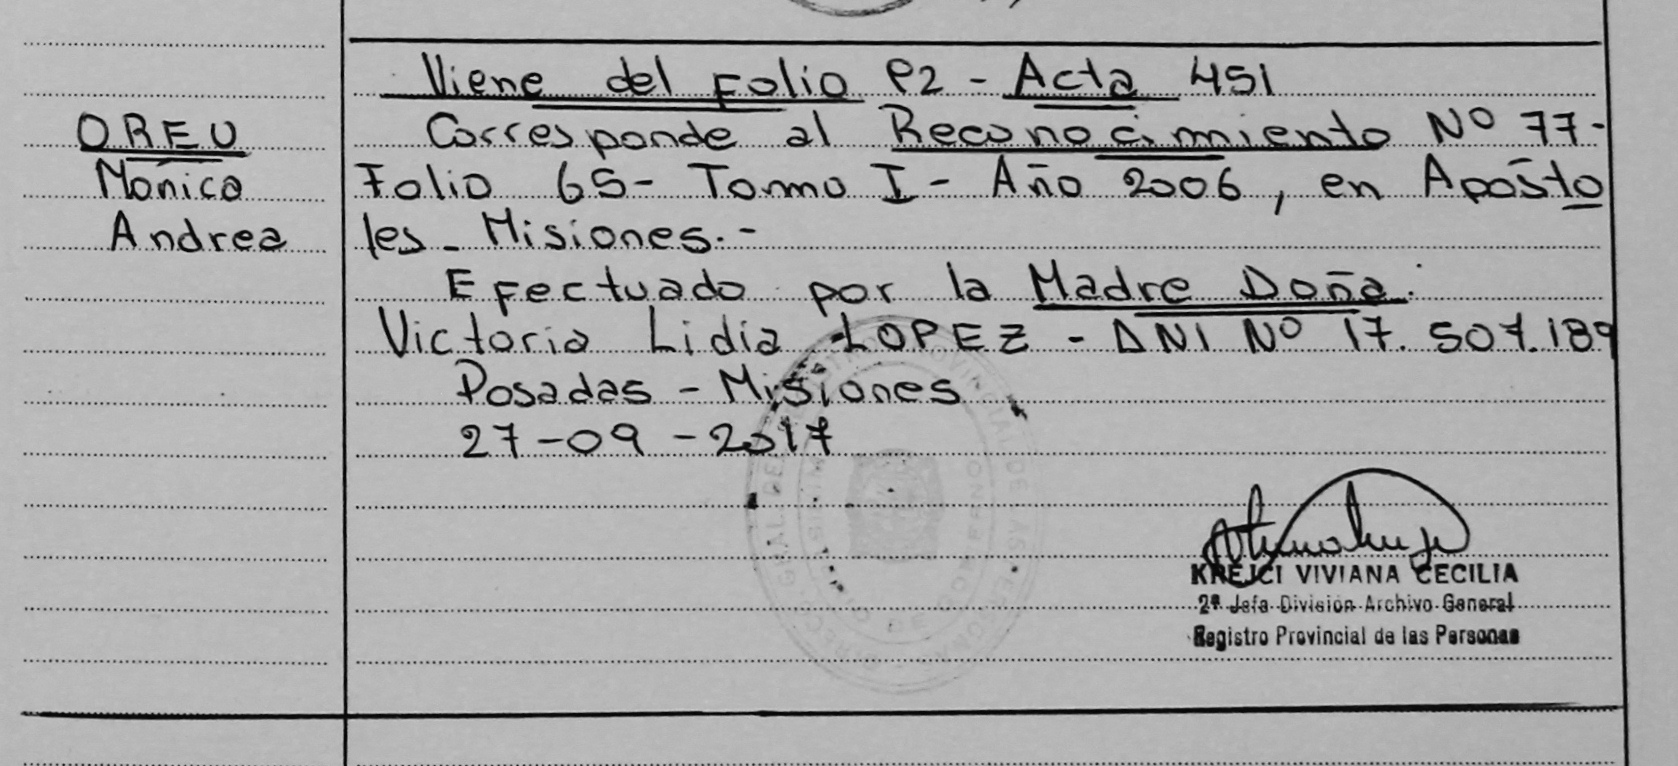 Viene del Folio P2 - Acta 451
OREU
Mónica
Andrea
Corresponde al Reconocimiento Nº 77-
Folio 65- Tommo I - Año 2006, en Aposto
les - Misiones.-
Efectuado por la Madre Doña:
Victoria Lidia LOPEZ - DNI Nº 17.507.189
Posadas - Misiones
27-09-2017
KREJCI VIVIANA CECILIA
2ª Jefa División Archivo General
Registro Provincial de las Personas